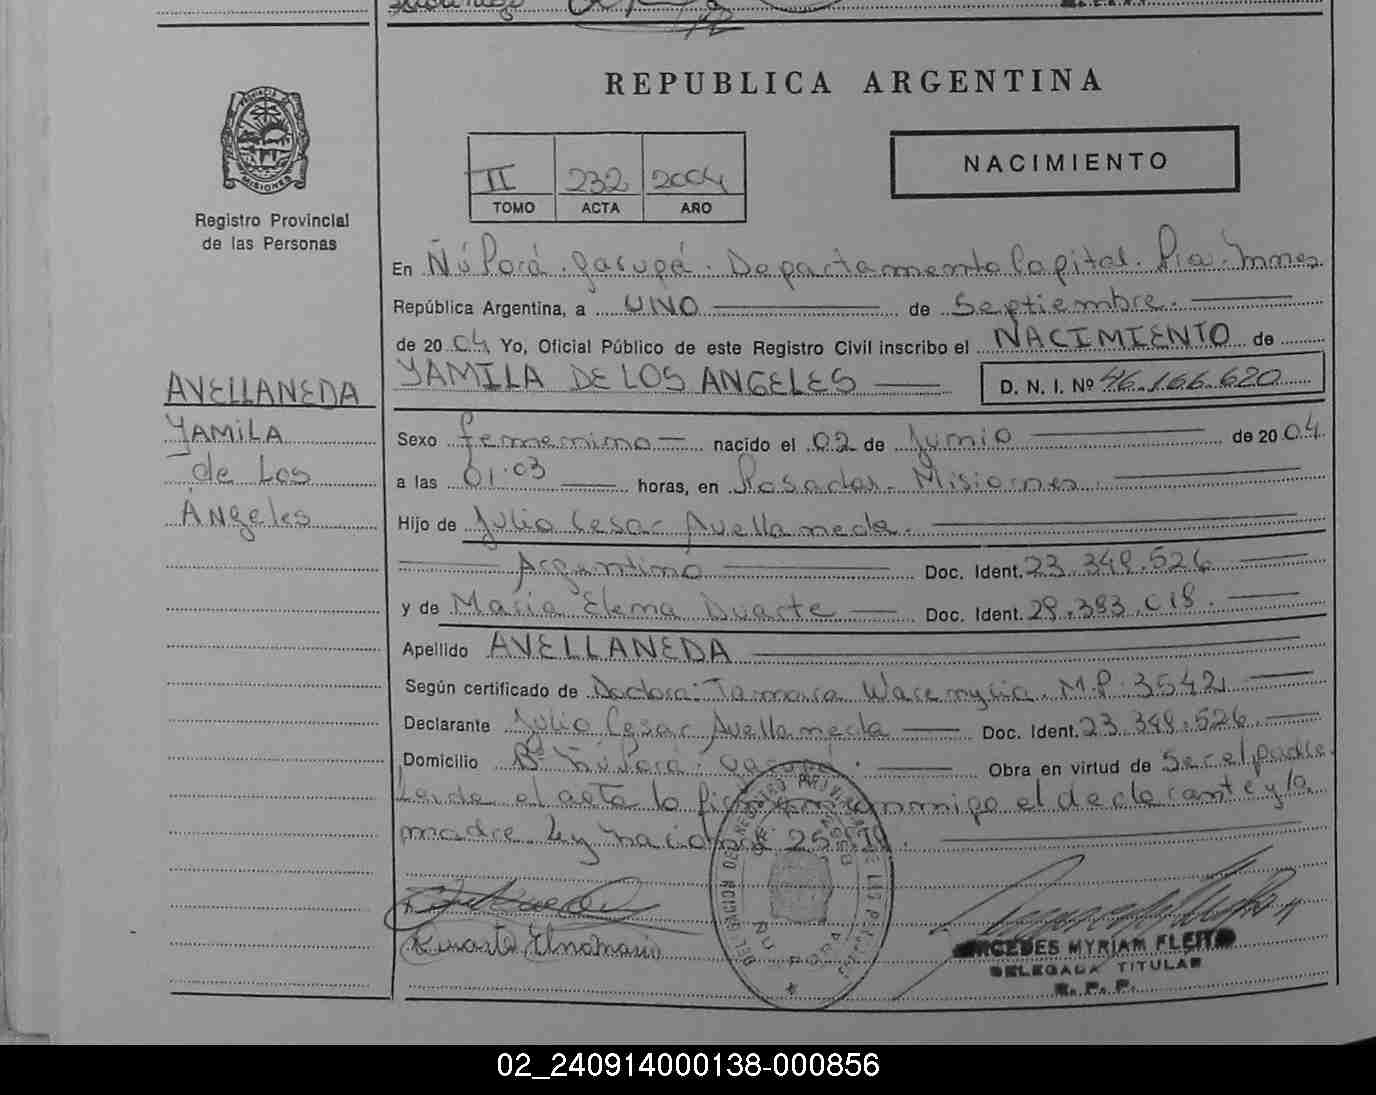 REPUBLICA ARGENTINA
PROVINCIA DE MISIONES
Registro Provincial
de las Personas
II 232 2004
TOMO ACTA AÑO
NACIMIENTO
En Ñú Porá. Garupá. Departamento Capital. Pia. Mnes
República Argentina, a UNO de Septiembre.
de 2004 Yo, Oficial Público de este Registro Civil inscribo el NACIMIENTO de
YAMILA DE LOS ANGELES D. N. I. Nº 46.166.620
AVELLANEDA
YAMILA
de Los
Ángeles
Sexo femenino nacido el 02 de Junio de 2004
a las 01.03 horas, en Posadas. Misiones.
Hijo de Julio Cesar Avellaneda.
Argentino Doc. Ident. 23.349.526
y de Maria Elena Duarte Doc. Ident. 29.383.019.
Apellido AVELLANEDA
Según certificado de Doctora: Tamara M.P. 3542
Declarante Julio Cesar Avellaneda Doc. Ident. 23.349.526
Domicilio Bº Ñú Porá. Garupá. Obra en virtud de Ser el padre.
Leida el acta la firman conmigo el declarante y la
madre. Ley nacional
DELEGACION DEL REGISTRO PROVINCIAL DE LAS PERSONAS
ÑU PORA
Duarte Elena Maria
MERCEDES MYRIAM FLEITA
DELEGADA TITULAR
R. P. P.
02_240914000138-000856